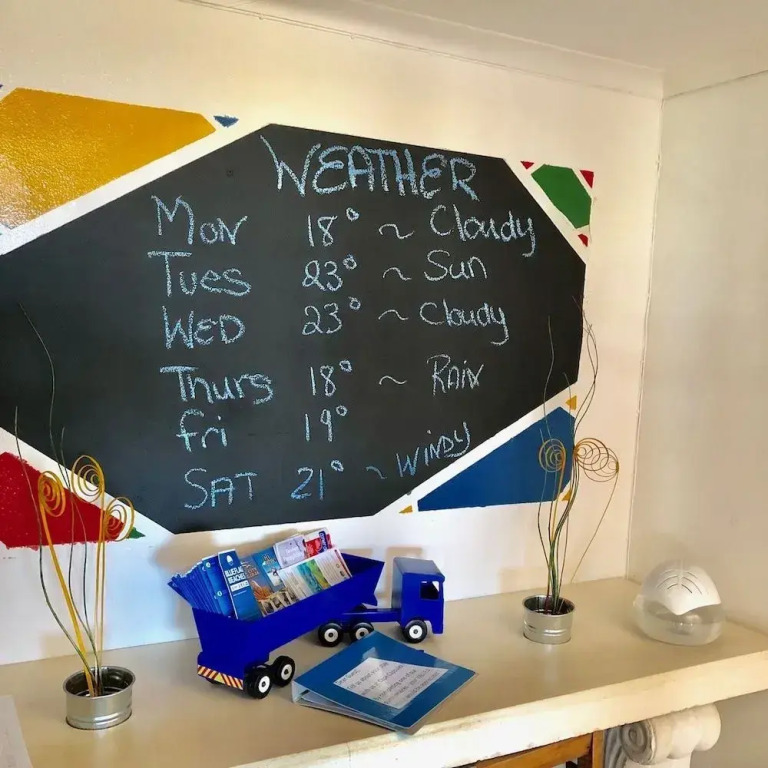 WEATHER
Mon 18° ~ Cloudy
Tues 23° ~ Sun
WED 23° ~ Cloudy
Thurs 18° ~ RAIN
fri 19°
SAT 21° ~ WINDY
BLUE FLAG
BEACHES